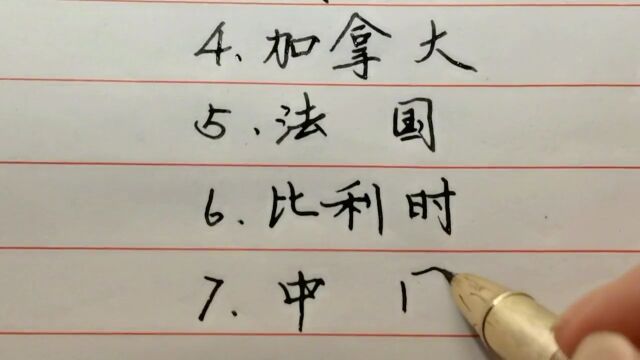 4.加拿大
5.法 国
6.比利时
7.中